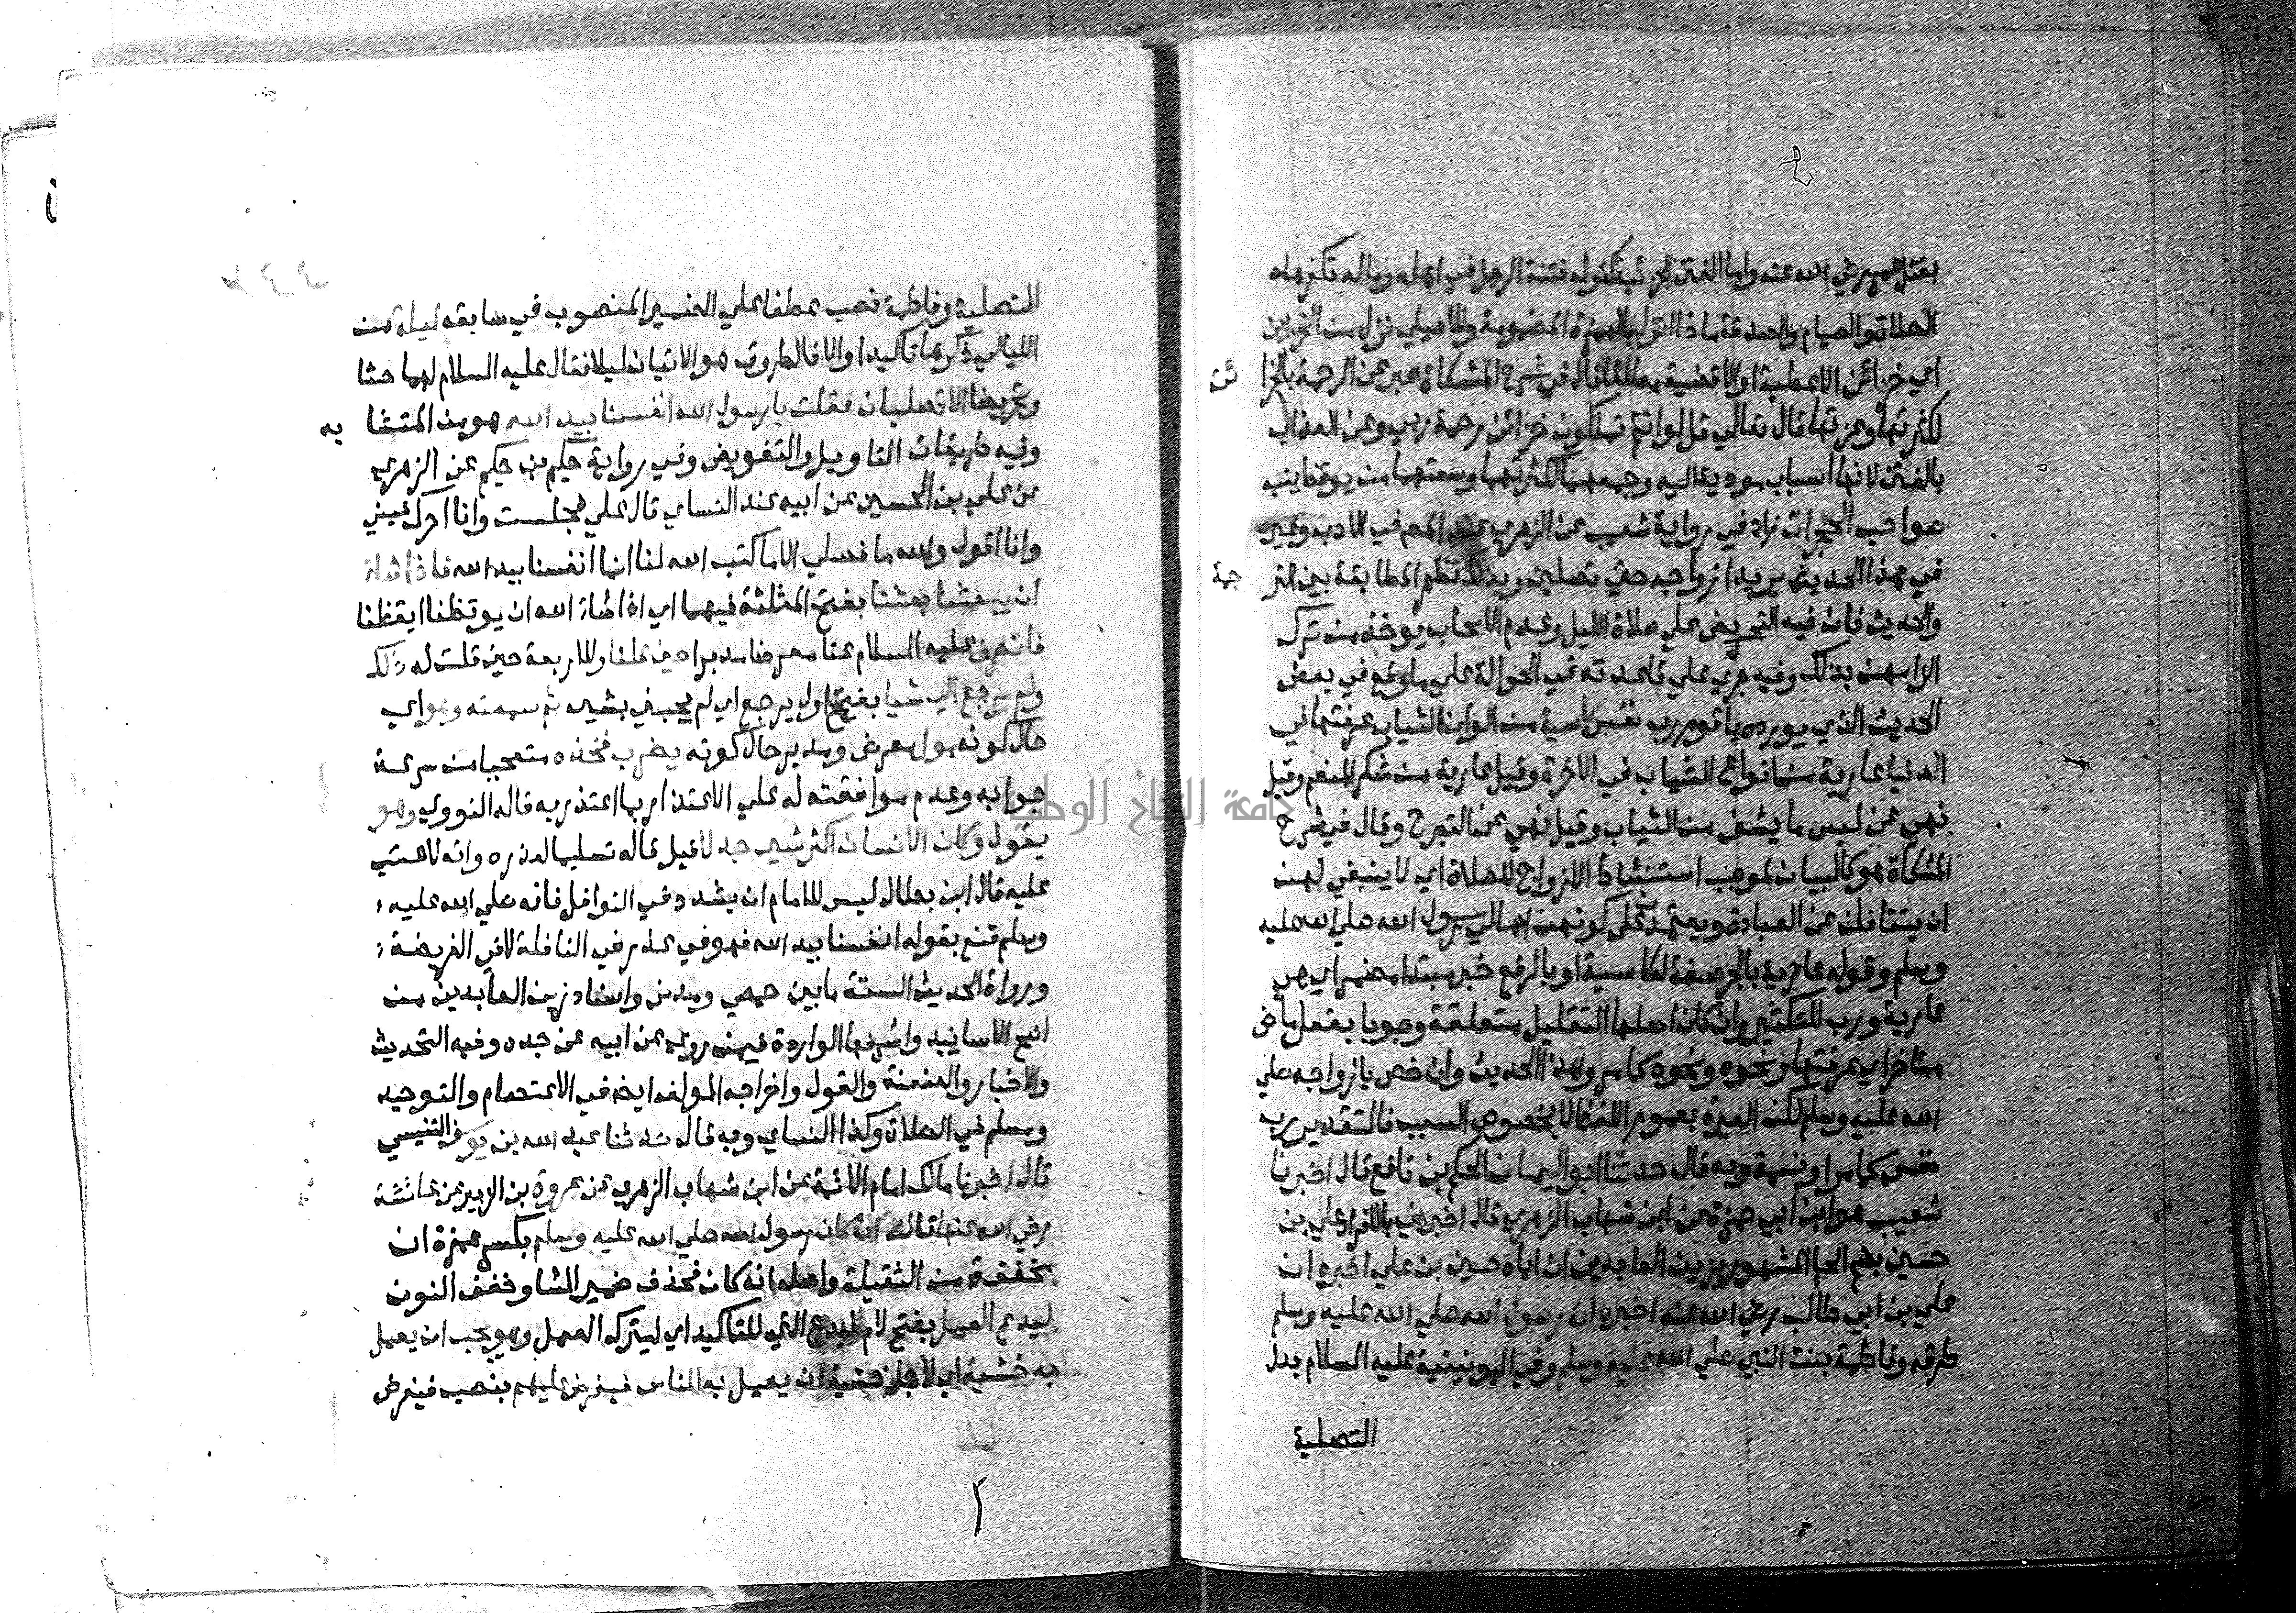 بقتل عمر رضي الله عنه واما الفتن الجزئية كقوله فتنة الرجل في اهله وماله تكفرها
الصلاة والصيام والصدقة ماذا انزل بالهمزة المضمومة وللاصيلي نزل من الخزاين
اي خزائن الاعطية او الاقضية مطلقا قال في شرح المشكاة عبر عن الرحمة بالخزا ئن
لكثرتها وعزتها قال تعالى قل لو انتم تملكون خزائن رحمة ربي وعن العذاب
بالفتن لانها اسباب مودية اليه وجمعهما لكثرتهما وسعتهما من يوقظ ينبه
صواحب الحجرات زاد في رواية شعيب عن الزهري عند المص في الادب وغيره
في هذا الحديث يريد ازواجه حتى تصلين وبذلك تظهر المطابقة بين التر جمة
والحديث فان فيه التحريض على صلاة الليل وعدم الايجاب يوخذ من ترك
الزامهن بذلك وفيه جري على قاعدته في الحوالة على ما وقع في بعض
الحديث الذي يورده يا قوم رب نفس كاسية من الوان الثياب عرفتها في
الدنيا عارية من انواع الثياب في الاخرة وقيل عارية من شكر المنعم وقيل
نهي عن لبس ما يشف من الثياب وقيل نهي عن التبرج وقال في شرح
المشكاة هو كالبيان لموجب استنشاط الازواج للصلاة اي لا ينبغي لهن
ان يتغافلن عن العبادة ويعتمدن على كونهن اهالي رسول الله صلى الله عليه
وسلم وقوله عارية بالجر صفة لكاسية او بالرفع خبر مبتدا مضمر اي هي
عارية ورب للتكثير وان كان اصلها التقليل متعلقة وجوبا بفعل ماض
متاخر اي عرفتها ونحوه ونحوه كما مر وهذا الحديث وان خص بازواجه صلى
الله عليه وسلم لكن العبرة بعموم اللفظ لا بخصوص السبب فالتقدير رب
نفس كما مر او نسمة وبه قال حدثنا ابو اليمان الحكم بن نافع قال اخبرنا
شعيب هو ابن ابي حمزة عن ابن شهاب الزهري قال اخبرني بالافراد علي بن
حسين بضم الحا المشهور بزين العابدين ان اباه حسين بن علي اخبره ان
علي بن ابي طالب رضي الله عنه اخبره ان رسول الله صلى الله عليه وسلم
طرقه وفاطمة بنت النبي صلى الله عليه وسلم وفي اليونينية عليه السلام بدل
التصلية
التصلية وفاطمة نصب عطفا على الضمير المنصوب في سابقه ليلة من
الليالي ذكرها تاكيدا والا فالطروق هو الاتيان ليلا فقال عليه السلام لهما حثا
وتحريضا الا تصليان فقلت يا رسول الله انفسنا بيد الله هو من المتشا به
وفيه طريقان التاويل والتفويض وفي رواية حكيم بن حكيم عن الزهري
عن علي بن الحسين عن ابيه عند النساي قال علي فجلست وانا اعرك عيني
وانا اقول والله ما نصلي الا ما كتب الله لنا انما انفسنا بيد الله فاذا شاء
ان يبعثنا بعثنا بفتح المثلثة فيهما اي اذا شاء الله ان يوقظنا ايقظنا
فانصرف عليه السلام عنا معرضا مدبرا حين قلنا وللاربعة حين قلت له ذلك
ولم يرجع الي شيا بفتح اول يرجع اي لم يجبني بشيء ثم سمعته وهو اي
حال كونه مول معرض ومدبر حال كونه يضرب فخذه متعجبا من سرعة
جوابه وعدم موافقته له على الاعتذار بما اعتذر به قاله النووي وهو
يقول وكان الانسان اكثر شيء جدلا قيل قاله تسليما لعذره وانه لا عتب
عليه قال ابن بطال ليس للامام ان يشدد في النوافل فانه صلى الله عليه
وسلم قنع بقوله انفسنا بيد الله فهو في عذر في النافلة لا في الفريضة
ورواة الحديث الستة ما بين حمصي ومدني واسناد زين العابدين من
اصح الاسانيد واشرفها الواردة فيمن روى عن ابيه عن جده وفيه التحديث
والاخبار والعنعنة والقول واخرجه المولف ايضا في الاعتصام والتوحيد
ومسلم في الصلاة وكذا النساي وبه قال حدثنا عبد الله بن يوسف التنيسي
قال اخبرنا مالك امام الائمة عن ابن شهاب الزهري عن عروة بن الزبير عن عائشة
رضي الله عنها قالت ان كان رسول الله صلى الله عليه وسلم بكسر همزة ان
مخففة من الثقيلة واصله انه كان فحذف ضمير الشان وخفف النون
ليدع العمل بفتح لام ليدع التي للتاكيد اي ليترك العمل وهو يحب ان يعمل
به خشية اي لاجل خشية ان يعمل به الناس فيفرض عليهم بنصب فيفرض
جامعة النجاح الوطنية